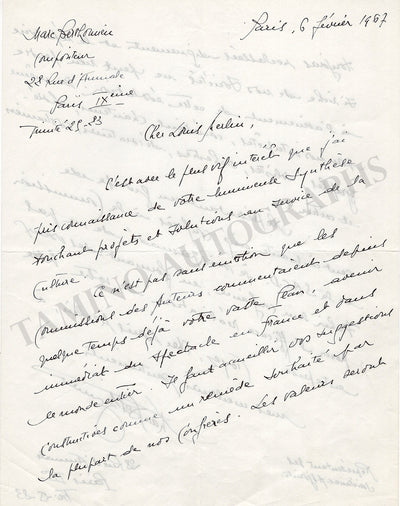 Marc Berthomieu
Compositeur
22 Rue d'Aumale
Paris IXème
Trinité 25-23
Paris, 6 février 1967
Cher Louis Merlin,
C'est avec le plus vif intérêt que j'ai
pris connaissance de votre lumineuse synthèse
touchant projets et solutions au service de la
Culture.
Ce n'est pas sans émotion que les
Commissions des auteurs commentaient depuis
quelque temps déjà votre vaste Plan, avenir
immédiat du spectacle en France et dans
le monde entier. Il faut accueillir vos suggestions
Constructives comme un remède souhaité par
la plupart de nos Confrères. Les valeurs seront
TAMINO AUTOGRAPHS